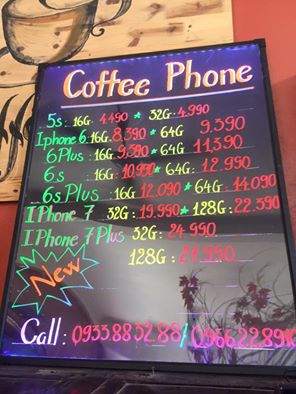 Coffee Phone
5s: 16G: 4.490 * 32G: 4.990
Iphone 6. 16G: 8,390 * 64G 9.390
6 Plus : 16G: 9,390 * 64G 11,390
6.s : 16G: 10,990 * 64G: 12.990
6s Plus, 16G 12.090 * 64G: 14.090
IPhone 7 32G: 19.990 * 128G: 22.390
IPhone 7 Plus 32G: 24 990
128G :
New
Call : 0933.88 52.88 /